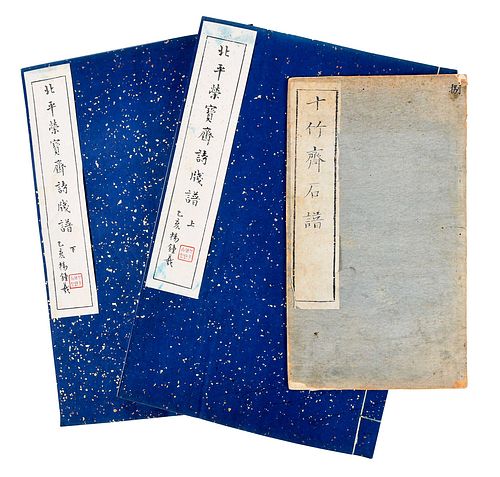 北平榮寶齋詩牋譜
下
乙亥楊鍾羲
北平榮寶齋詩牋譜
上
乙亥楊鍾羲
十竹齋石譜